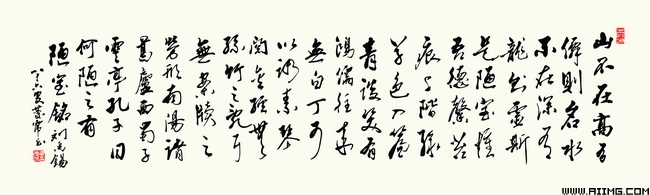 山不在高有
僊則名水
不在深有
龍則靈斯
是陋室惟
吾德馨苔
痕上階綠
草色入簾
青談笑有
鴻儒往來
無白丁可
以調素琴
閱金經無
絲竹之亂耳
無案牘之
勞形南陽諸
葛廬西蜀子
雲亭孔子曰
何陋之有
陋室銘劉禹錫
WWW.AIIMG.COM